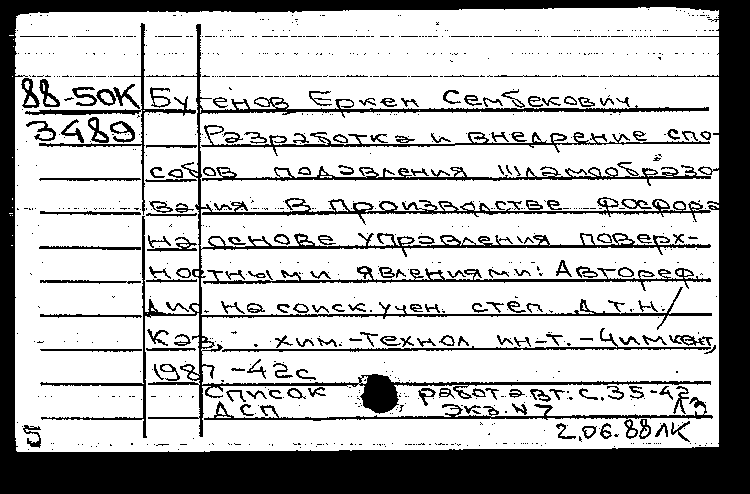 88-50К Бугенов Еркен Сембекович.
3489 Разработка и внедрение спо-
собов подавления шламообразо-
вания в производстве фосфора
на основе управления поверх-
ностными явлениями: Автореф.
Дис. на соиск. учен. степ. д.т.н./
Каз. хим.-технол. ин-т. - Чимкент,
1987. - 42с
Список работ авт.: с. 35-42
ДСП Экз. N 7 ЛЗ
2.06.88 ЛК